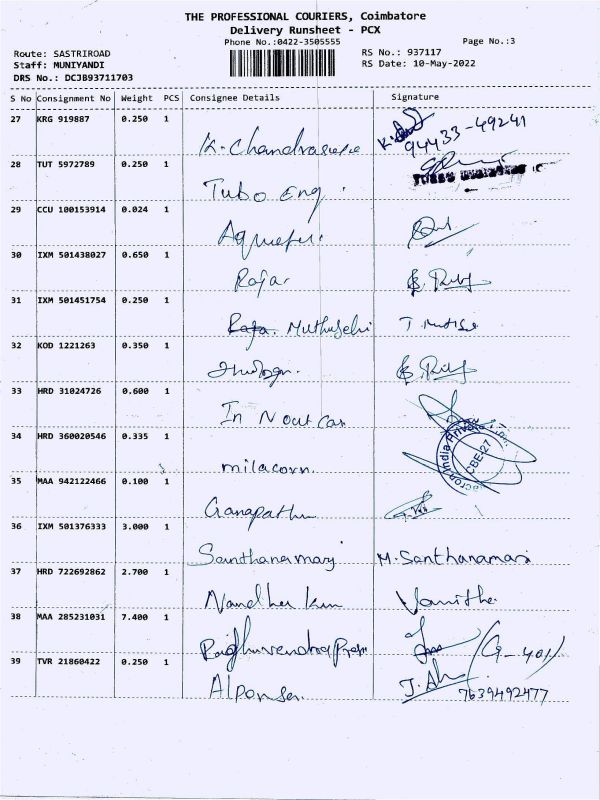 THE PROFESSIONAL COURIERS, Coimbatore
Delivery Runsheet - PCX
Phone No.:0422-3505555
Page No.:3
Route: SASTRIROAD
RS No.: 937117
Staff: MUNIYANDI
RS Date: 10-May-2022
DRS No.: DCJB93711703
S No Consignment No Weight PCS Consignee Details Signature
27 KRG 919887 0.250 1 K. 94433-49241
28 TUT 5972789 0.250 1 Tubo Eng.
29 CCU 100153914 0.024 1
30 IXM 501438027 0.650 1 Rajar
31 IXM 501451754 0.250 1 Muthuselvi
32 KOD 1221263 0.350 1
33 HRD 31024726 0.600 1 In N out Car
34 HRD 360020546 0.335 1 milacorn. CBE-27
35 MAA 942122466 0.100 1
36 IXM 501376333 3.000 1 Santhanamary M. Santhanamari
37 HRD 722692862 2.700 1 Vanitha
38 MAA 285231031 7.400 1 (G-401)
39 TVR 21860422 0.250 1
7639492477